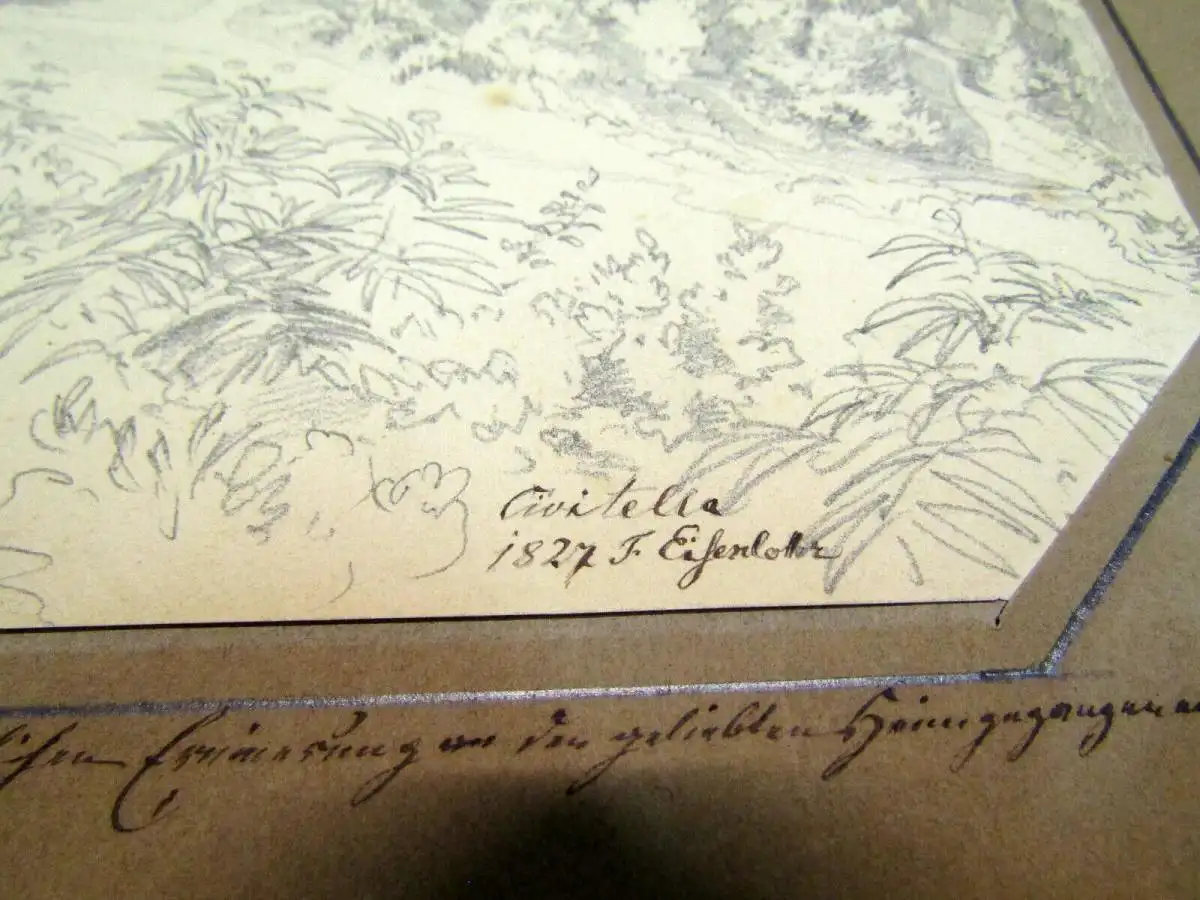 Civitella
1827 F. Eisenlohr
lichen Erinnerung an den geliebten Heimgegangenen